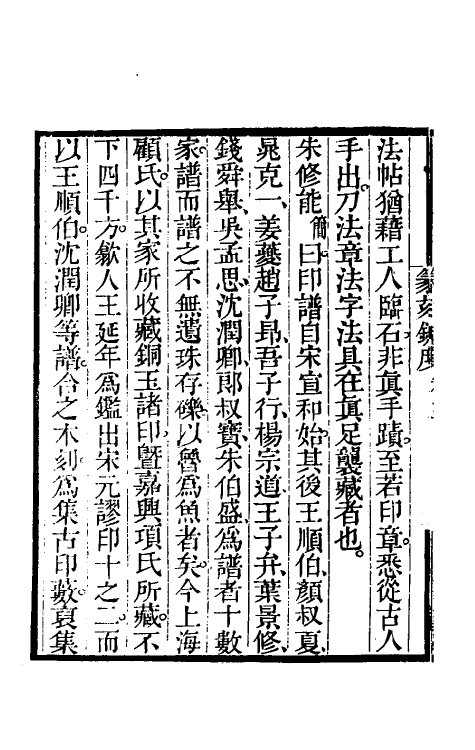 法帖猶藉工人臨石非眞手蹟至若印章悉從古人
手出刀法章法字法具在眞足襲藏者也
朱修能簡曰印譜自宋宣和始其後王順伯顏叔夏
晁克一姜夔趙子昂吾子行楊宗道王子弁葉景修
錢舜舉吳孟思沈潤卿郎叔寶朱伯盛爲譜者十數
家譜而譜之不無遺珠存礫以魯爲魚者矣今上海
顧氏以其家所收藏銅玉諸印曁嘉興項氏所藏不
下四千方歙人王延年爲鑑出宋元謬印十之二而
以王順伯沈潤卿等譜合之木刻爲集古印藪裒集
篆刻鍼度